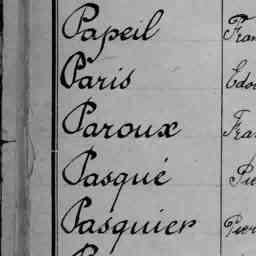 Papeil Fran
Paris Edou
Paroux Fra
Pasqué Pie
Pasquier Pier